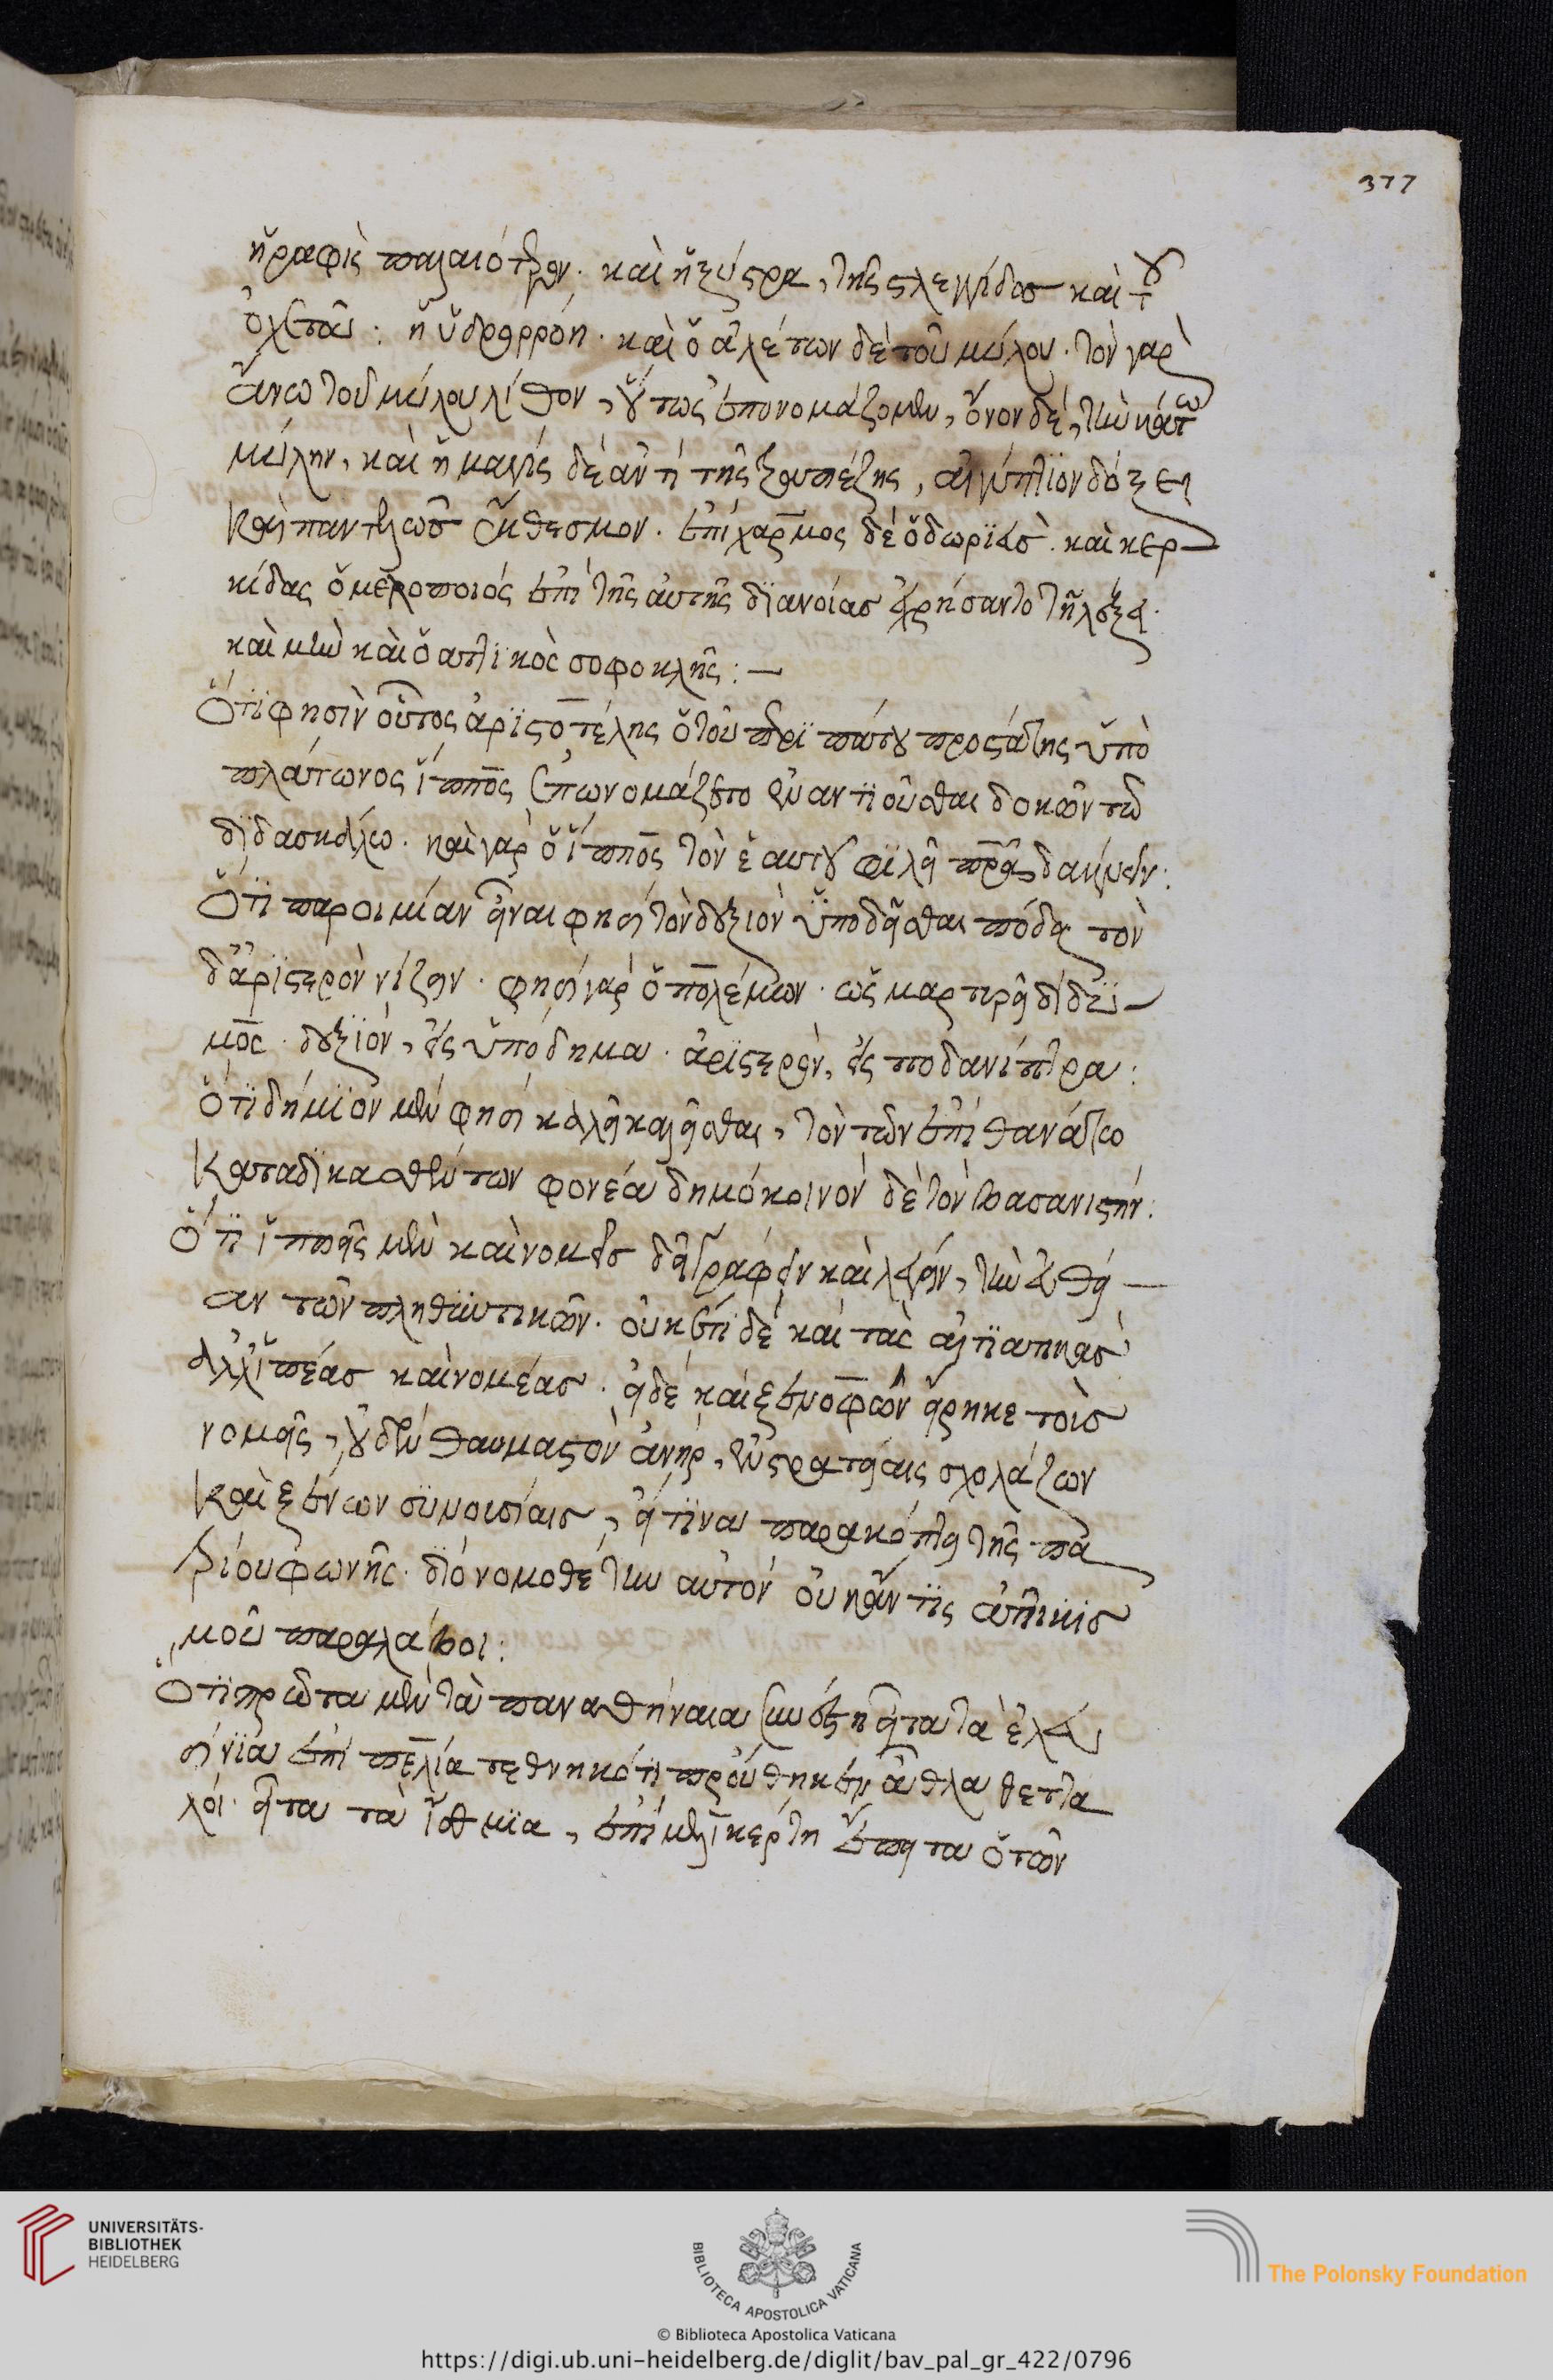 ἡ ῥαφὶς παλαιότερον· καὶ ἡ ξύστρα, τῆς στλεγγίδος καὶ τοῦ
ὀχετοῦ: ἡ ὑδρορρόη· καὶ ὁ ἀλέτων δὲ τοῦ μύλου· τὸν γὰρ
ἄνω τοῦ μύλου λίθον, οὕτως ἐπονομάζομεν, ὄνον δὲ, τὴν κάτω
μύλην, καὶ ἡ μαγίς δὲ ἀντὶ τῆς τραπέζης, αἰγύπτιον δόξει
καὶ παντελῶς ἔκθεσμον· ἐπίχαρμος δὲ ὁ δωριεὺς· καὶ κερ-
κίδας ὁ μελοποιός ἐπὶ τῆς αὐτῆς διανοίας ἐχρήσαντο τῇ λέξει·
καὶ μὴν καὶ ὁ αττικὸς σοφοκλῆς:—
Ὅτι φησὶν οὗτος ἀριστοτέλης ὁ τοῦ περι πάτου προστάτης ὑπὸ
πλάτωνος ἵππος ἐπωνομάζετο ἐναντιοῦσθαι δοκῶν τῶ
διδασκάλω· καὶ γὰρ ὁ ἵππος τὸν ἑαυτοῦ φιλεῖ πατέρα δακνειν:
Ὅτι παροιμίαν εἶναι φησι τὸν δεξιὸν ὑποδεῖσθαι πόδα τὸν
δ' ἀριστερὸν νίζειν· φησὶ γὰρ ὁ πολέμων· ὡς μαρτυρεῖ δίδυ-
μος· δεξιὸν, εἰς ὑπόδημα· ἀριστερὸν, εἰς ποδανίπτρα:
Ὅτι δήμιον μέν φησι καλεῖ καλεῖσθαι, τὸν τῶν ἐπὶ θανάτω
καταδικασθέντων φονέα δημόκοινον δὲ τὸν βασανιστήν:
Ὅτι ἱππεῖς μὲν καὶ νομεῖς δεῖ γράφειν καὶ λέγειν, τὴν εὐθεῖ-
αν τῶν πληθυντικῶν· οὐκ ἔτι δὲ καὶ τὰς αἰτιατικας
ἀλλ' ἱππέας καὶ νομέας· εἰ δὲ καὶ ξενοφῶν εἴρηκε τοὺς
νομεῖς, οὐδὲν θαυμαστὸν ἀνὴρ, ἐν στρατείαις σχολάζων
καὶ ξένων συνουσίαις, εἴ τινα παρακόπτει τῆς πα
τρίου φωνῆς· διὸ νομοθέτην αὐτὸν οὐκ ἄν τις ἀττικισ
μοῦ παραλάβοι:
Ὅτι πρῶτα μὲν τὰ παναθήναια συνέστη εἶτα τὰ ἐλευ
σίνια ἐπὶ πελία τεθνηκότι προύθηκεν ἆθλα θετταλ
λοὶ· εἶτα τὰ ἴσθμια, ἐπὶ μελικέρτη ἔπειτα ὁ τῶν
377
UNIVERSITÄTS-
BIBLIOTHEK
HEIDELBERG
BIBLIOTECA APOSTOLICA VATICANA
The Polonsky Foundation
© Biblioteca Apostolica Vaticana
https://digi.ub.uni-heidelberg.de/diglit/bav_pal_gr_422/0796